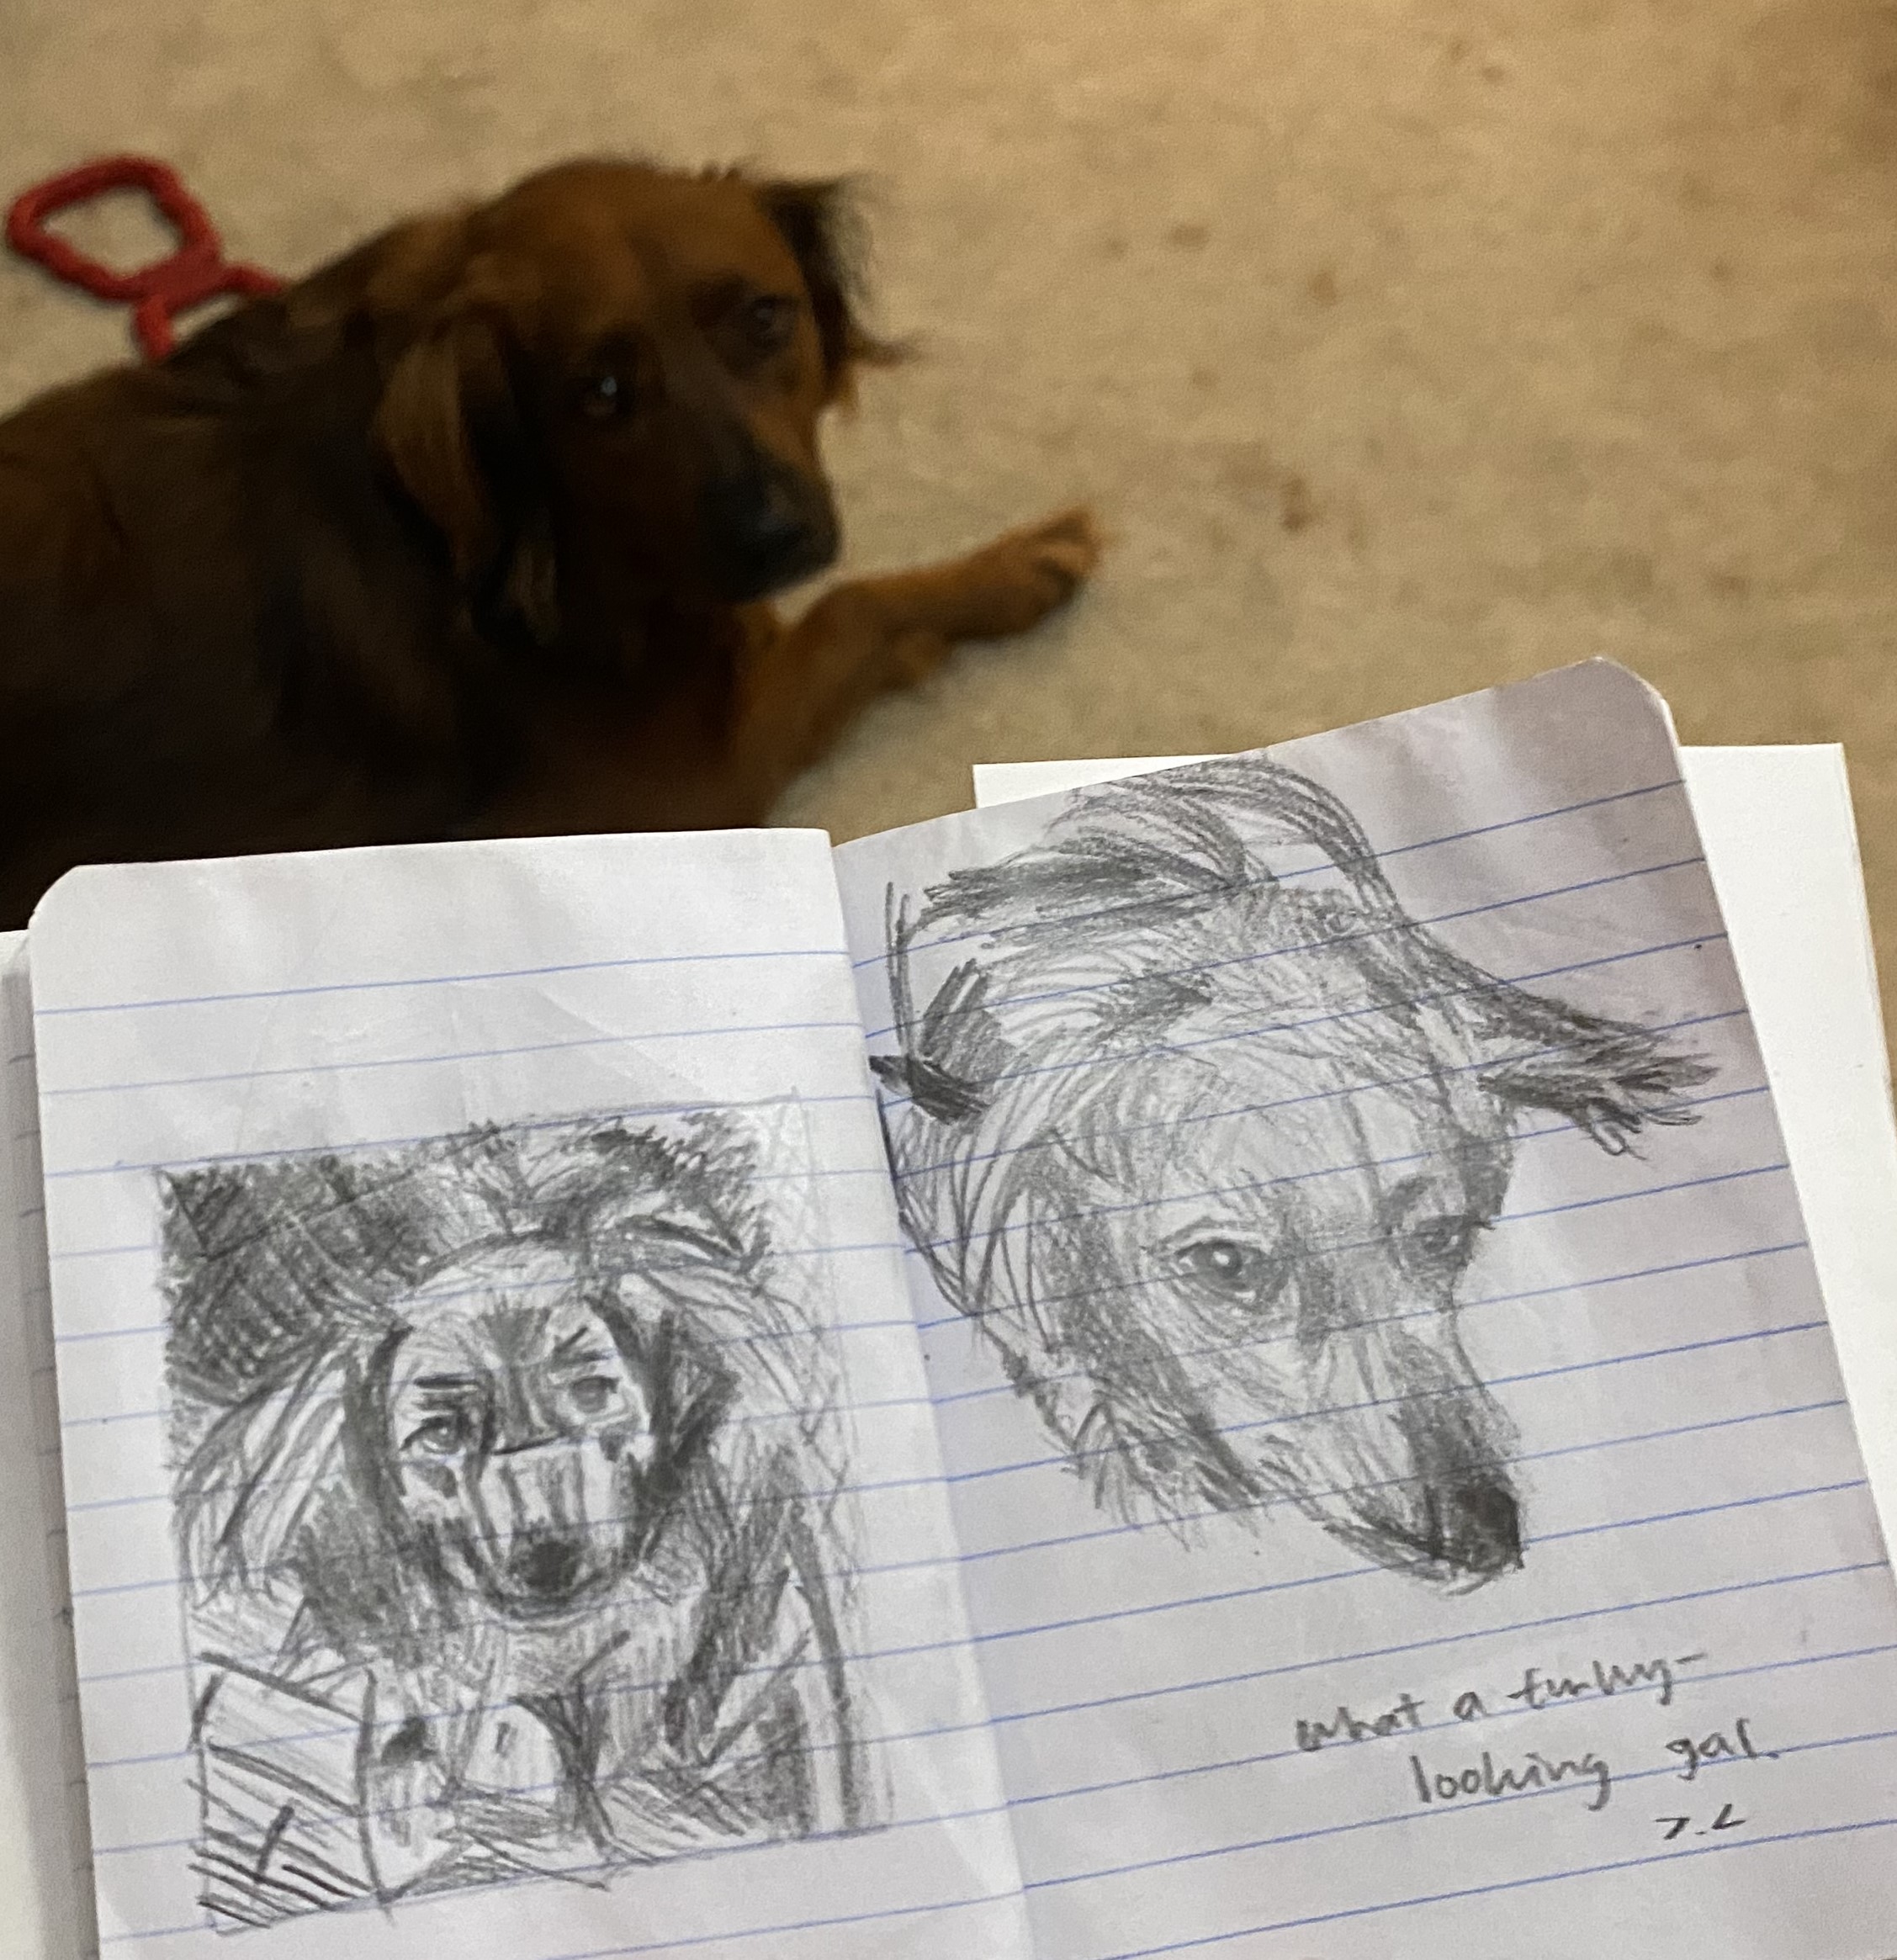 what a funky-
looking gal.
>.<